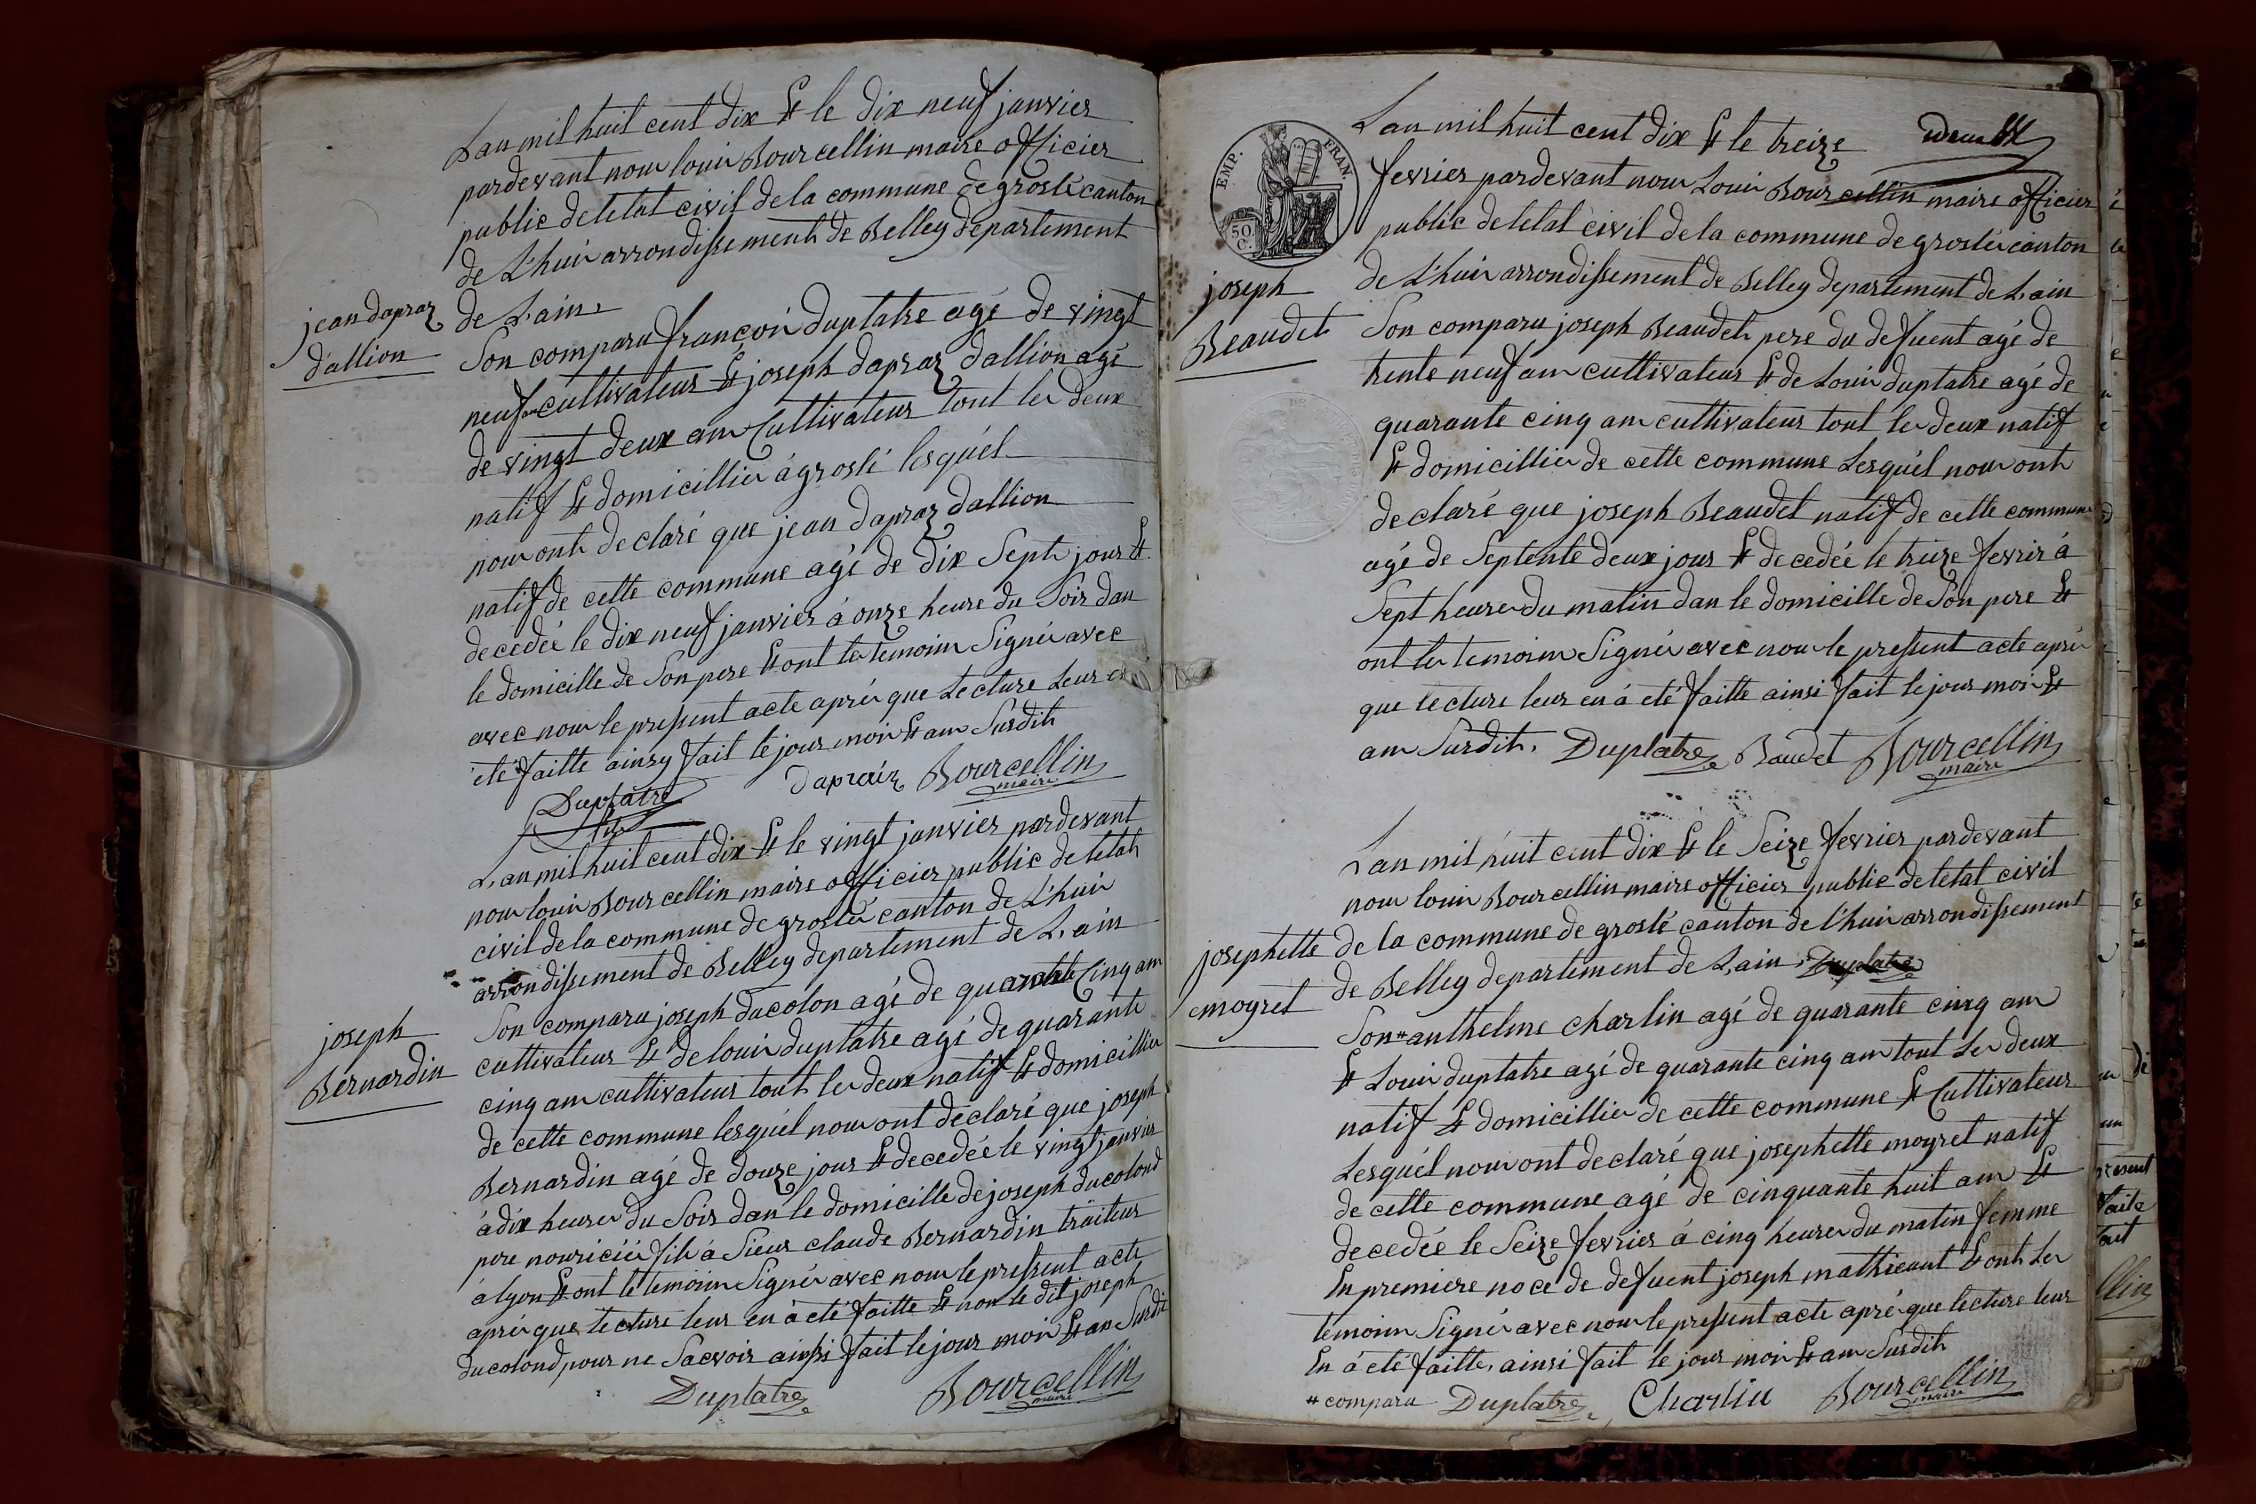 Lan mil huit cent dix & le dix neuf janvier
pardevant nous louis Bourcellin maire officier
public de letat civil de la commune de groslé canton
de L'huis arrondissement de Belley departement
de L'ain
jean dapraz
d'allion
Son comparu françois duplatre agé de vingt
neuf cultivateur & joseph dapraz dallion agé
de vingt deux ans Cultivateur tout les deux
natif & domicilliés á groslé lesquél
nous ont declaré que jean dapraz dallion
natif de cette commune agé de dix Sept jour &
decedée le dix neuf janvier á onze heure du Soir dans
le domicille de Son pere & ont les temoins Signés avec
avec nous le pressent acte aprés que Lecture Leur en
eté faitte ainsy fait le jour mois & ans Susdit
Duplatre
fils
dapraz Bourcellin
maire
L'an mil huit cent dix & le vingt janvier pardevant
nous louis Bourcellin maire officier public de letat
civil de la commune de groslée canton de L'huis
arrondissement de Belley departement de L'ain
joseph
Bernardin
Son comparu joseph ducolon agé de quarante Cinq ans
cultivateur & de louis duplatre agé de quarante
cinq ans cultivateur tout les deux natif & domicilliés
de cette commune lesquél nous ont declaré que joseph
Bernardin agé de douze jours & decedée le vingt janvier
á dix heures du Soir dans le domicille de joseph ducolond
pere nouriciée fils á Sieur claude Bernardin traiteur
á lyon & ont le temoins Signé avec nous le pressent acte
aprés que lecture leur en á eté faitte & non le dit joseph
ducolond pour ne Sacvoir ainssi fait le jour mois & an Susdit
Duplatre Bourcellin
maire
EMP. FRAN.
50
C.
L'an mil huit cent dix & le treize
fevrier pardevant nous Louis Bourcellin maire officier
public de letat civil de la commune de groslée canton
de L'huis arrondissement de Belley departement de L'ain
joseph
Beaudet
Son comparu joseph Beaudet pere du defuent agé de
trente neuf ans cultivateur & de Louis duplatre agé de
quarante cinq ans cultivateur tout les deux natif
& domicilliés de cette commune Lesquél nous ont
declaré que joseph Beaudet natif de cette commune
agé de Septente deux jours & decedée le treize fevrir á
Sept heures du matin dans le domicille de Son pere &
ont les temoins Signés avec nous le pressent acte aprés
que lecture leur en á eté faitte ainsi fait le jour mois &
ans Susdit. Duplatre Baudet Bourcellin
maire
L'an mil huit cent dix & le Seize fevrier pardevant
nous louis Bourcellin maire officier public de letat civil
de la commune de groslé canton de l'huis arrondissement
de Belley departement de L'ain. Duplatre
josephette
moyret
Son # anthelme charlin agé de quarante cinq ans
& Louis duplatre agé de quarante cinq ans tout Les deux
natif & domicilliés de cette commune & Cultivateur
Lesquél nous ont declaré que josephette moyret natif
de cette commune agé de cinquante huit ans &
decedée le Seize fevrier á cinq heures du matin femme
En premiere noce de defuent joseph mathieaut & ont Les
temoins Signés avec nous le pressent acte aprés que lecture leur
En á eté faitte, ainsi fait le jour mois & ans Susdit
# comparu Duplatre Charlin Bourcellin
maire